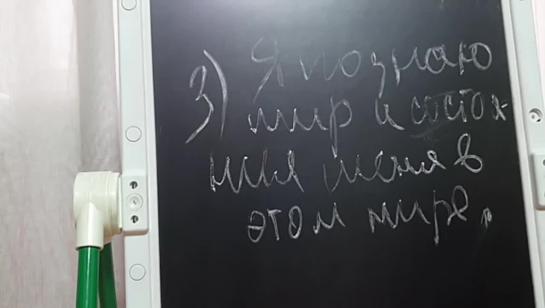 3) Я познаю
мир и состоя-
ния меня в
этом мире.